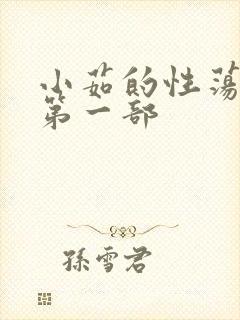 小茹的性荡
第一部
孫雪君